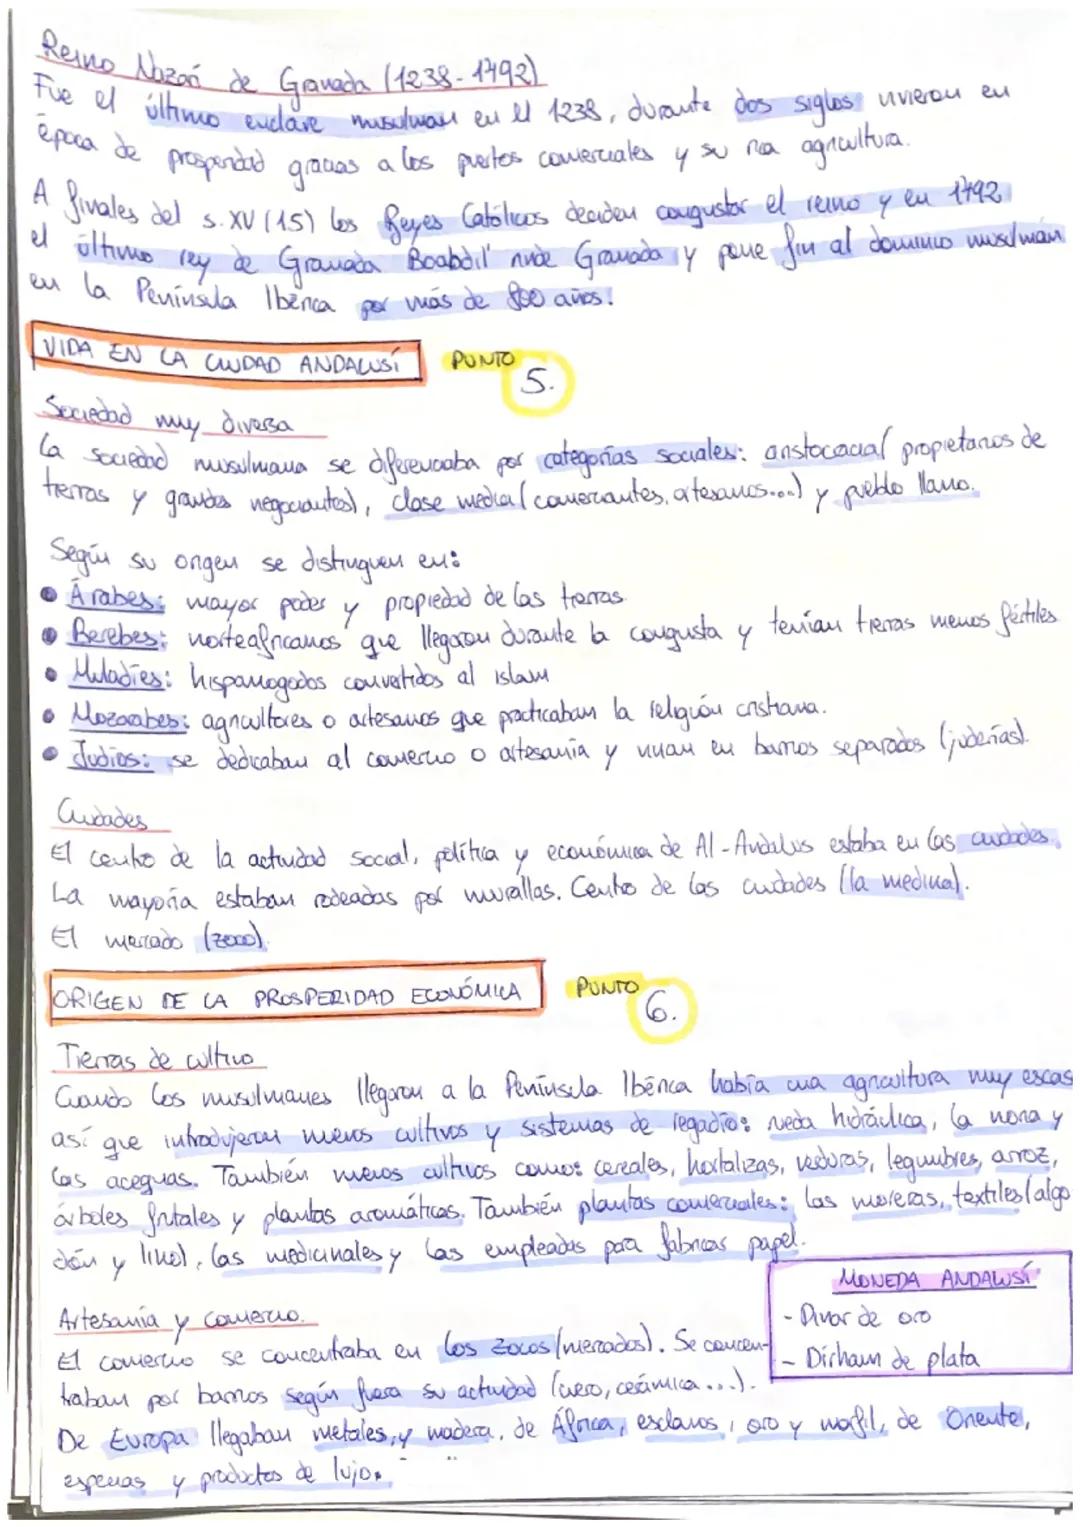 Reino Nazarí de Granada (1238-1492)
Fue el último enclave musulman en el 1238, durante dos siglos vivieron en
época de prosperidad gracias a los puertos comerciales y su rica agricultura.
A finales del s. XV (15) los Reyes Católicos deciden conquistar el reino y en 1492
el último rey de Granada Boabdil rinde Granada y pone fin al dominio musulmán
en la Península Ibérica por más de 800 años.
VIDA EN LA CIUDAD ANDALUSÍ PUNTO 5.
Sociedad muy diversa
La sociedad musulmana se diferenciaba por categorías sociales: aristocacia( propietarios de
tierras y grandes negociantes), clase media (comerciantes, artesanos...) y pueblo llano.
Según su origen se distinguen en:
• Árabes: mayor poder y propiedad de las tierras.
• Berebes: norteafricanos que llegaron durante la conquista y tenían tierras menos fértiles
• Muladíes: hispanogodos convertidos al islam
• Mozarabes: agricultores o artesanos que practicaban la religión cristiana.
• Judíos: se dedicaban al comercio o artesanía y vivían en barrios separados (juderías).
Ciudades
El centro de la actividad social, política y económica de Al-Andalus estaba en las ciudades.
La mayoría estaban rodeadas por murallas. Centro de las ciudades (la medina).
El mercado (zoco).
ORIGEN DE LA PROSPERIDAD ECONÓMICA PUNTO 6.
Tierras de cultivo
Cuando los musulmanes llegaron a la Península Ibérica había una agricultura muy escas
así que introdujeron nuevos cultivos y sistemas de regadío: rueda hidráulica, la noria y
las acequias. También nuevos cultivos como: cereales, hortalizas, verduras, legumbres, arroz,
árboles frutales y plantas aromáticas. También plantas comerciales: las moreras, textiles (algo
dón y lino), las medicinales y las empleadas para fabricar papel.
MONEDA ANDALUSÍ
- Dinar de oro
- Dirham de plata
Artesanía y comercio.
El comercio se concentraba en los zocos (mercados). Se concen-
traban por barrios según fuera su actividad (cuero, cerámica...).
De Europa llegaban metales, y madera, de África, esclavos, oro y marfil, de Oriente,
especias y productos de lujo.